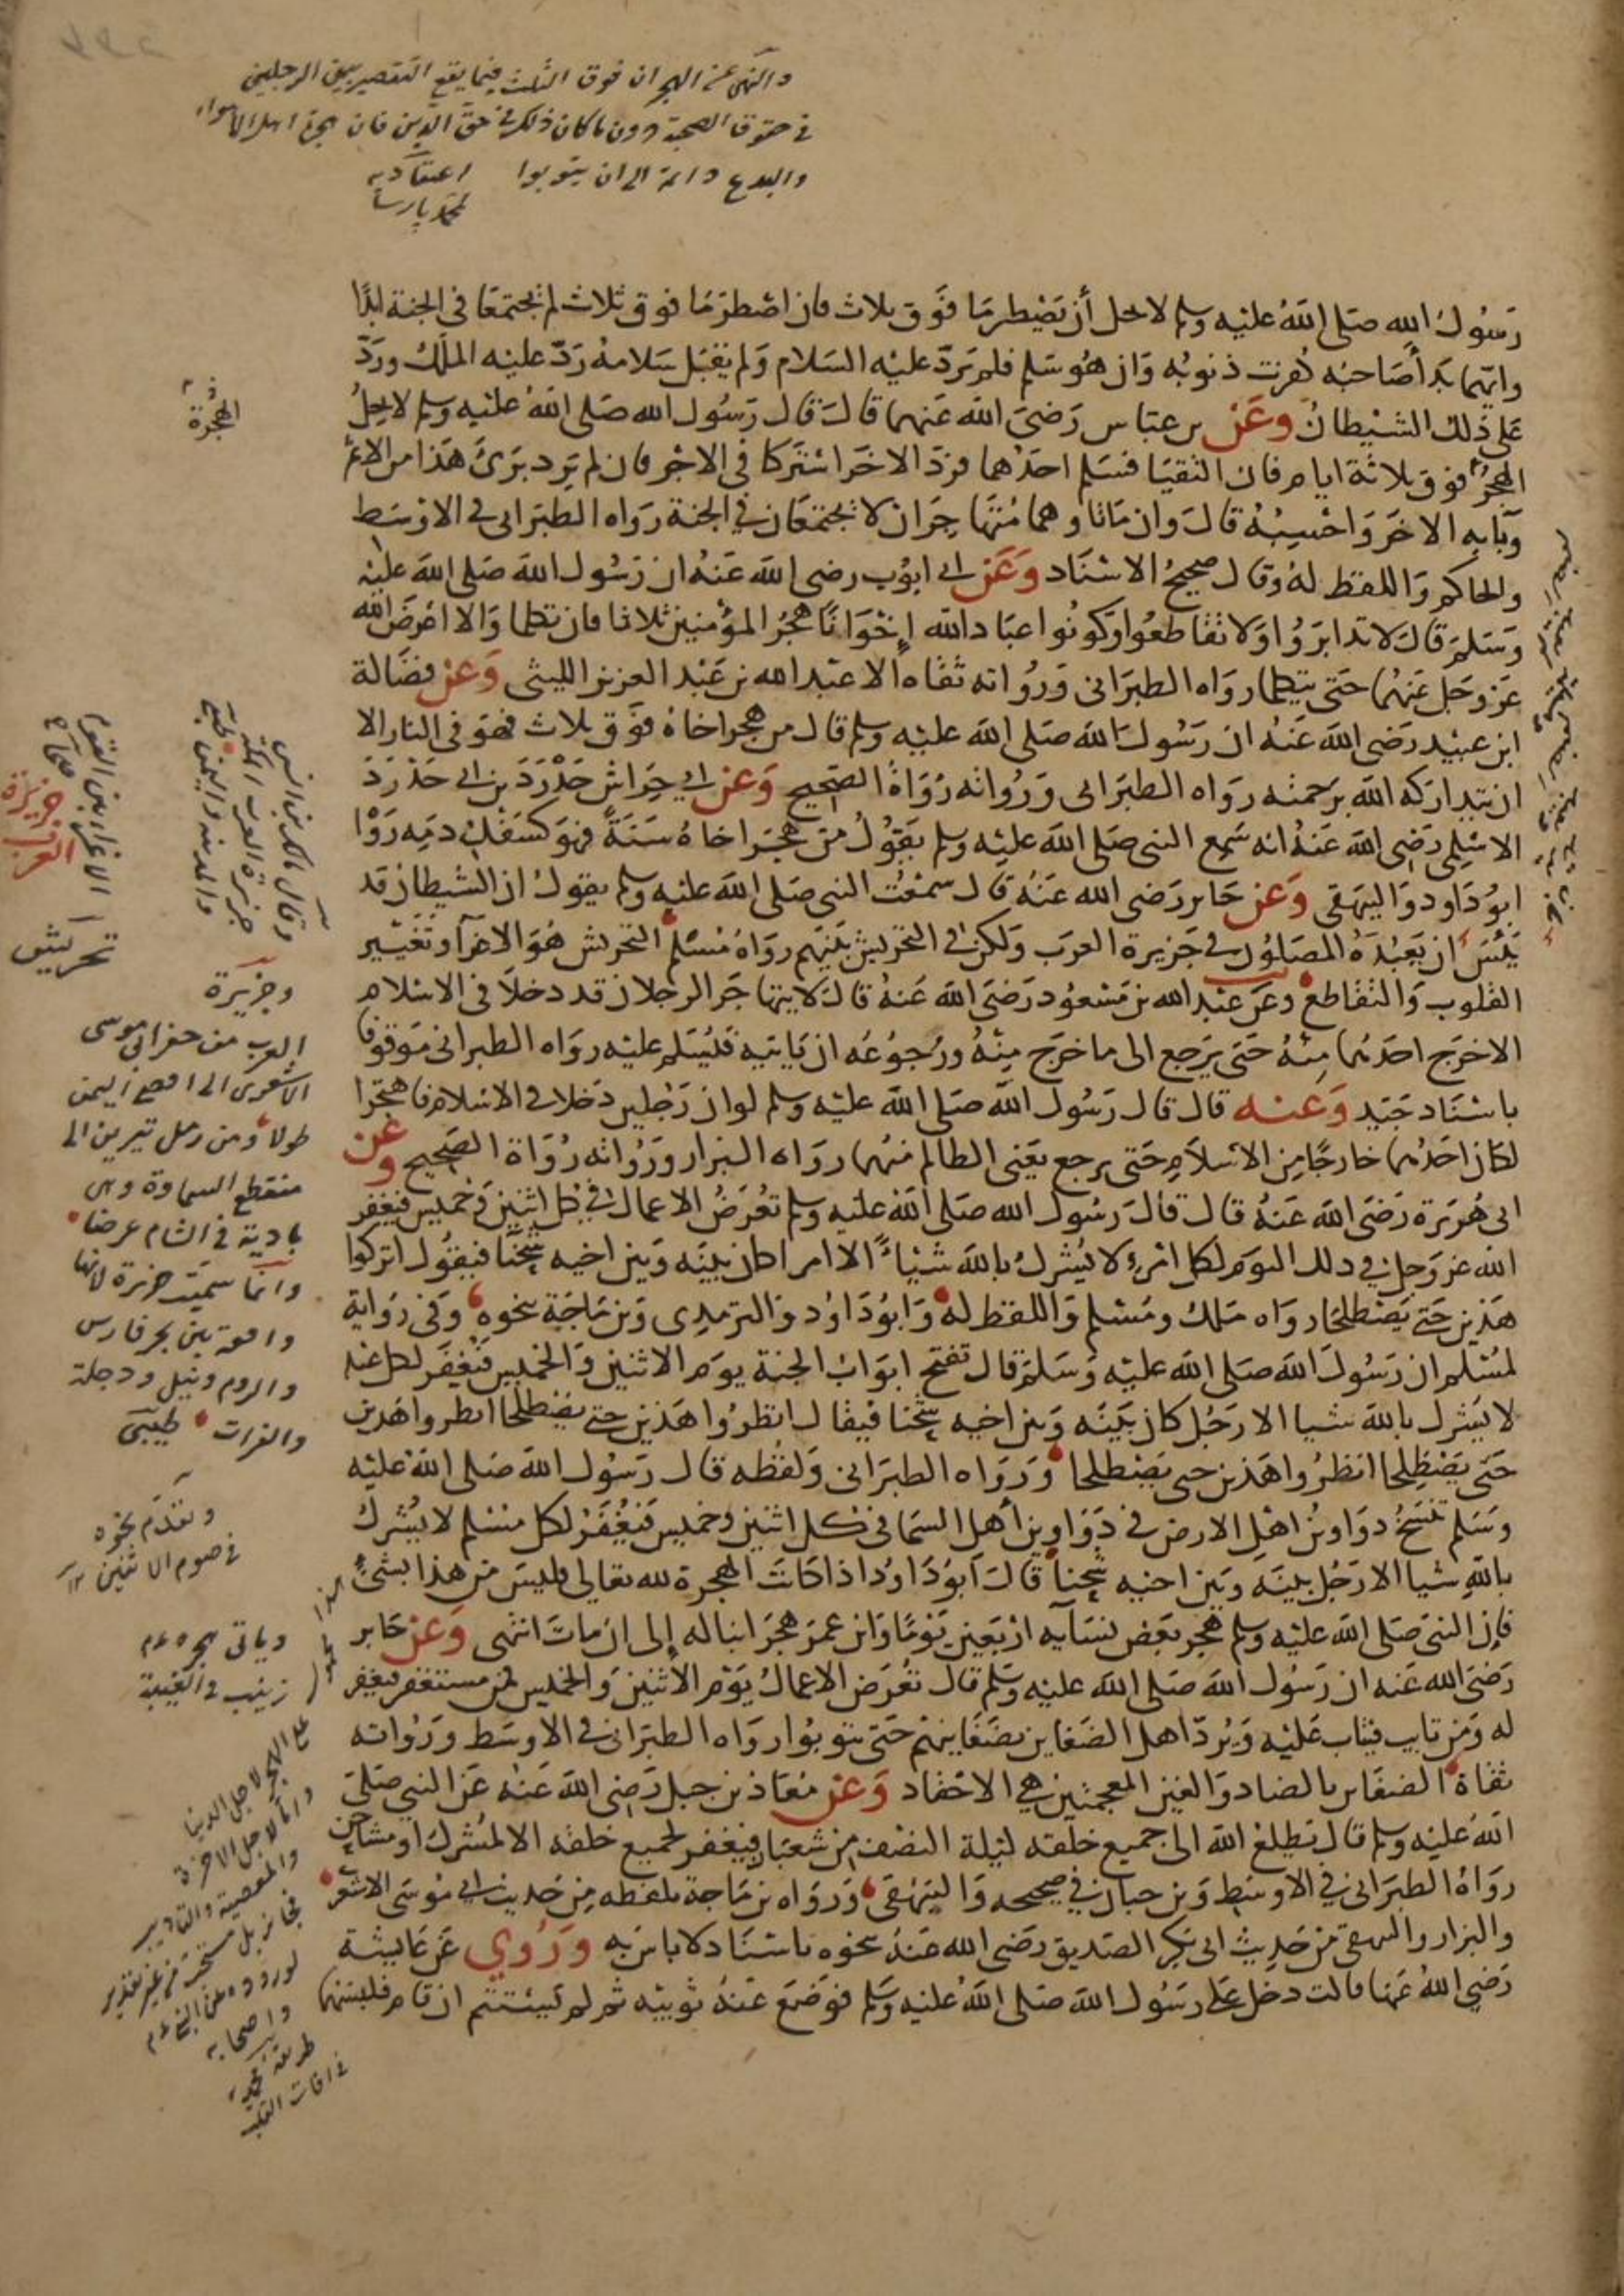 والنهى عن الهجران فوق الثلث فيما يقع التقصير بين الرجلين
فى حقوق الصحبة دون ما كان ذلك فى حق الدين فان هجرة اهل الاهواء
والبدع دائمة الى ان يتوبوا اعتقاديه
لمحمد پارسا
رَسُولُ الله صلى الله عليه وسلم لا يحل أن يَصْطرمَا فَوق ثلاث فان اصْطرَمَا فوق ثلاث لم يجتمعَا فى الجنة ابدًا
وايهما بَدأ صَاحبَه كُفرت ذنوبُه وَان هُو سَلم فلم يَردّ عليْه السَلام وَلم يَقبَل سَلامهُ رَدّ عليْه المَلك ورَدّ
عَلى ذلك الشيْطانُ وعَن بن عبَاس رَضىَ الله عَنهما قالَ قالَ رَسُول الله صَلى الله عليْه وسلم لا يحلُ
الهجْرُ فوق ثلاثة ايام فان التقيَا فسَلم احدُهما فردّ الاخَر اشتركا فى الاجْر فان لم يَرد بَرئَ هَذا من الاثم
وبَآء به الاخَر وَاحْسِبُهُ قالَ وان مَاتا وهما مُتهَاجِرَان لا يَجتمعَان فى الجنة رَوَاه الطبَرانى فى الاوْسَط
والحاكم وَاللفظ لهُ وقال صحيحُ الاسْنَاد وَعَن ابى ايوُب رضى الله عَنهُ ان رَسُول الله صَلى الله عليْه
وَسَلمَ قالَ لا تدابَرُوا وَلا تقاطعُوا وَكونُوا عبَاد الله إخْوَانًا هَجْرُ المؤمنين ثلاثا فان تكلما وَالا اعْرَضَ الله
عَز وَجَل عَنهُما حَتى يتكلما رواه الطبَرَانى وَرُوَاته ثقاة الا عبْد الله بن عَبْد العزيز الليثى وَعَن فضَالة
ابن عبيْد رَضى الله عَنهُ ان رَسُولَ الله صَلى الله عليْه وسلم قال من هجر اخاهُ فوَق ثلاث فهوَ فى النار الا
ان يَتدارَكه الله برَحمته رواه الطبَرَانى وَرُوَاته رُوَاةُ الصَحِيح وَعَن ابى خِرَاش حَدْرَدَ بن ابى حَدْرَدَ
الاسْلِمى رَضى الله عَنهُ انه سَمعَ النبى صَلى الله عليْه وسلم يَقوُلُ مَن هَجَرَ اخاهُ سَنَةً فهوَ كسَفْك دَمِه رَوَاه
ابوُ دَاود وَالبيهقى وَعَن جَابر رَضى الله عَنهُ قال سمعْتُ النبى صَلى الله عليْه وسلم يقول ان الشيطان قد
يَئِسَ ان يَعبُدَهُ المصَلوُن فى جَزيرة العرَب وَلكن فى التحْريش بَيْنَهم رَوَاهُ مُسْلم التحريش هُوَ الاغرَآ وتغيير
القلوب وَالتقاطع وعَن عبْد الله بن مَسْعوُد رَضىَ الله عَنهُ قالَ لا يتهاجَر الرجلان قد دخلاَ فى الاسْلام
الا خرَج احَدهُما مِنْهُ حَتى يَرجع الى ما خرَج مِنْهُ ورُجوُعُه ان يَاتيَه فَيُسَلم عليْه رَوَاه الطبرانى مَوقوفا
باسْنَاد جَيّد وَعنه قال قال رَسُول الله صَلى الله عليْه وسلم لو ان رَجُلين دَخلا فى الاسْلام فاهتجَرا
لكان احَدهُما خارجًا مِن الاسْلاَم حَتى يرجع يَعْنى الظالم مَنهُما روَاه البزار ورُواته رُوَاة الصَحِيح وعن
ابى هُرَيَرة رَضىَ الله عَنهُ قال قالَ رَسُول الله صَلى الله عليْه وسلم تعُرَضُ الاعمالُ فى كل اثنين وَخميس فيَغفر
الله عز وَجل فى ذلك اليوَم لكل امْرئ لا يُشْركُ بالله شَيْأً الا امرأ كان بَيْنَه وَبين اخيه شِحْنَا فيقوُل اتركوا
هَذين حَتى يَصْطلحَا روَاه مَلك ومُسْلم وَاللفظ لهُ وَابوُدَاوُد وَالترمِذى وَبن مَاجَة بنحوه وَفى روَاية
لمُسْلم ان رَسُولَ الله صَلى الله عليْه وَسَلمَ قال تفتحُ ابوَابُ الجنة يومَ الاثنين وَالخميس فيُغفَر لكل عَبد
لا يشرك بالله شيا الا رَجُل كان بَيْنَه وَبين اخيه شِحْنا فيقال انظرُوا هَذين حَتى يصْطلحَا انظروا هَذين
حَتى يَصْطلِحا انظرُوا هَذين حَتى يَصْطلحا وَرَوَاه الطبَرَانى وَلفظُه قال رَسُول الله صَلى الله عليْه
وَسَلم تُنسَخُ دوَاوينُ اهْل الارض فى دَوَاوين أهل السَما فى كل اثنين وخميس فيَغُفَرُ لكل مسْلم لا يُشرك
بالله شيا الا رَجُل بينَه وَبَين اخيه شِحْناً قالَ ابوُدَاودُ اذا كانَت الهجرة لله تعَالى فليسَ من هذا بشئ
فإن النبىَ صَلى الله عليْه وسلم هَجَر بعَض نسَآيه ارْبَعين يَوْمًا وَابن عمَر هَجَرَ ابنا له إلى ان مَاتَ انتهى وَعَن جَابر
رَضىَ الله عَنه ان رَسُول الله صَلى الله عليْه وسَلم قال تعُرَض الاعمالُ يَوْم الاثنين وَالخميس فمن مستغفر فيغفر
له وَمَن تايب فيتاب عَليْه وَيُردّ اهل الضَغاين بضَغاينهم حَتى يتوبوُا رواه الطبَرَانى فى الاوسَط ورُوَاته
ثقاة الضغَاين بالضاد وَالغين المعجمتين هى الاحْقاد وَعَن مُعَاذ بن جبَل رَضى الله عَنهُ عَن النبي صَلى
الله عليْه وسلم قال يَطلعُ الله الى جميع خلقه ليْلة النصْف من شعْبَان فيَغفر لجميع خلقه الا لمُشرك او مشاحن
رَوَاهُ الطبَرَانى فى الاوسَط وَبن حبان فى صحيحه وَالبيهقى وَرَوَاه بن مَاجة بلفظه مِن حَديث ابى مُوسَى الاشعرى
والبزار والبيهقى من حَدِيث ابى بَكر الصّديق رَضى الله عَنهُ بنحوه باسْنَاد لا باسَ به وَرُوي عَن عَايشة
رَضي اللهُ عَنها قالت دخل عَلى رَسُول الله صَلى الله عليْه وسَلم فوَضَعَ عَنهُ ثوبيْه ثم لم يَسْتتم ان قام فلبسَهُما
الهجرة
الاغراء بين القوم
صحاح
جزيرة
العرب
وقال مالك بن انس
جزيرة العرب مكة
والمدينة واليمن
تحريش
وجزيرة
العرب من حفر ابى موسى
الاشعرى الى اقصى اليمن
طولا ومن رمل يبرين الى
منقطع السماوة وهى
بادية فى الشام عرضا
وانما سميت جزيرة لانها
واقعة بين بحر فارس
والروم ونيل ودجلة
والفرات طيبى
وتقدم نحوه
فى صوم الاثنين
وياتى هجره
زينب فى الغيبة
الهجر لاجل الدنيا
واما لاجل الاخرة
والمعصية والتاديب
فجائز بل مستحب من غير تقدير
لوروده عن النبى
واصحابه
طريقة محمدية
فى افات القلب